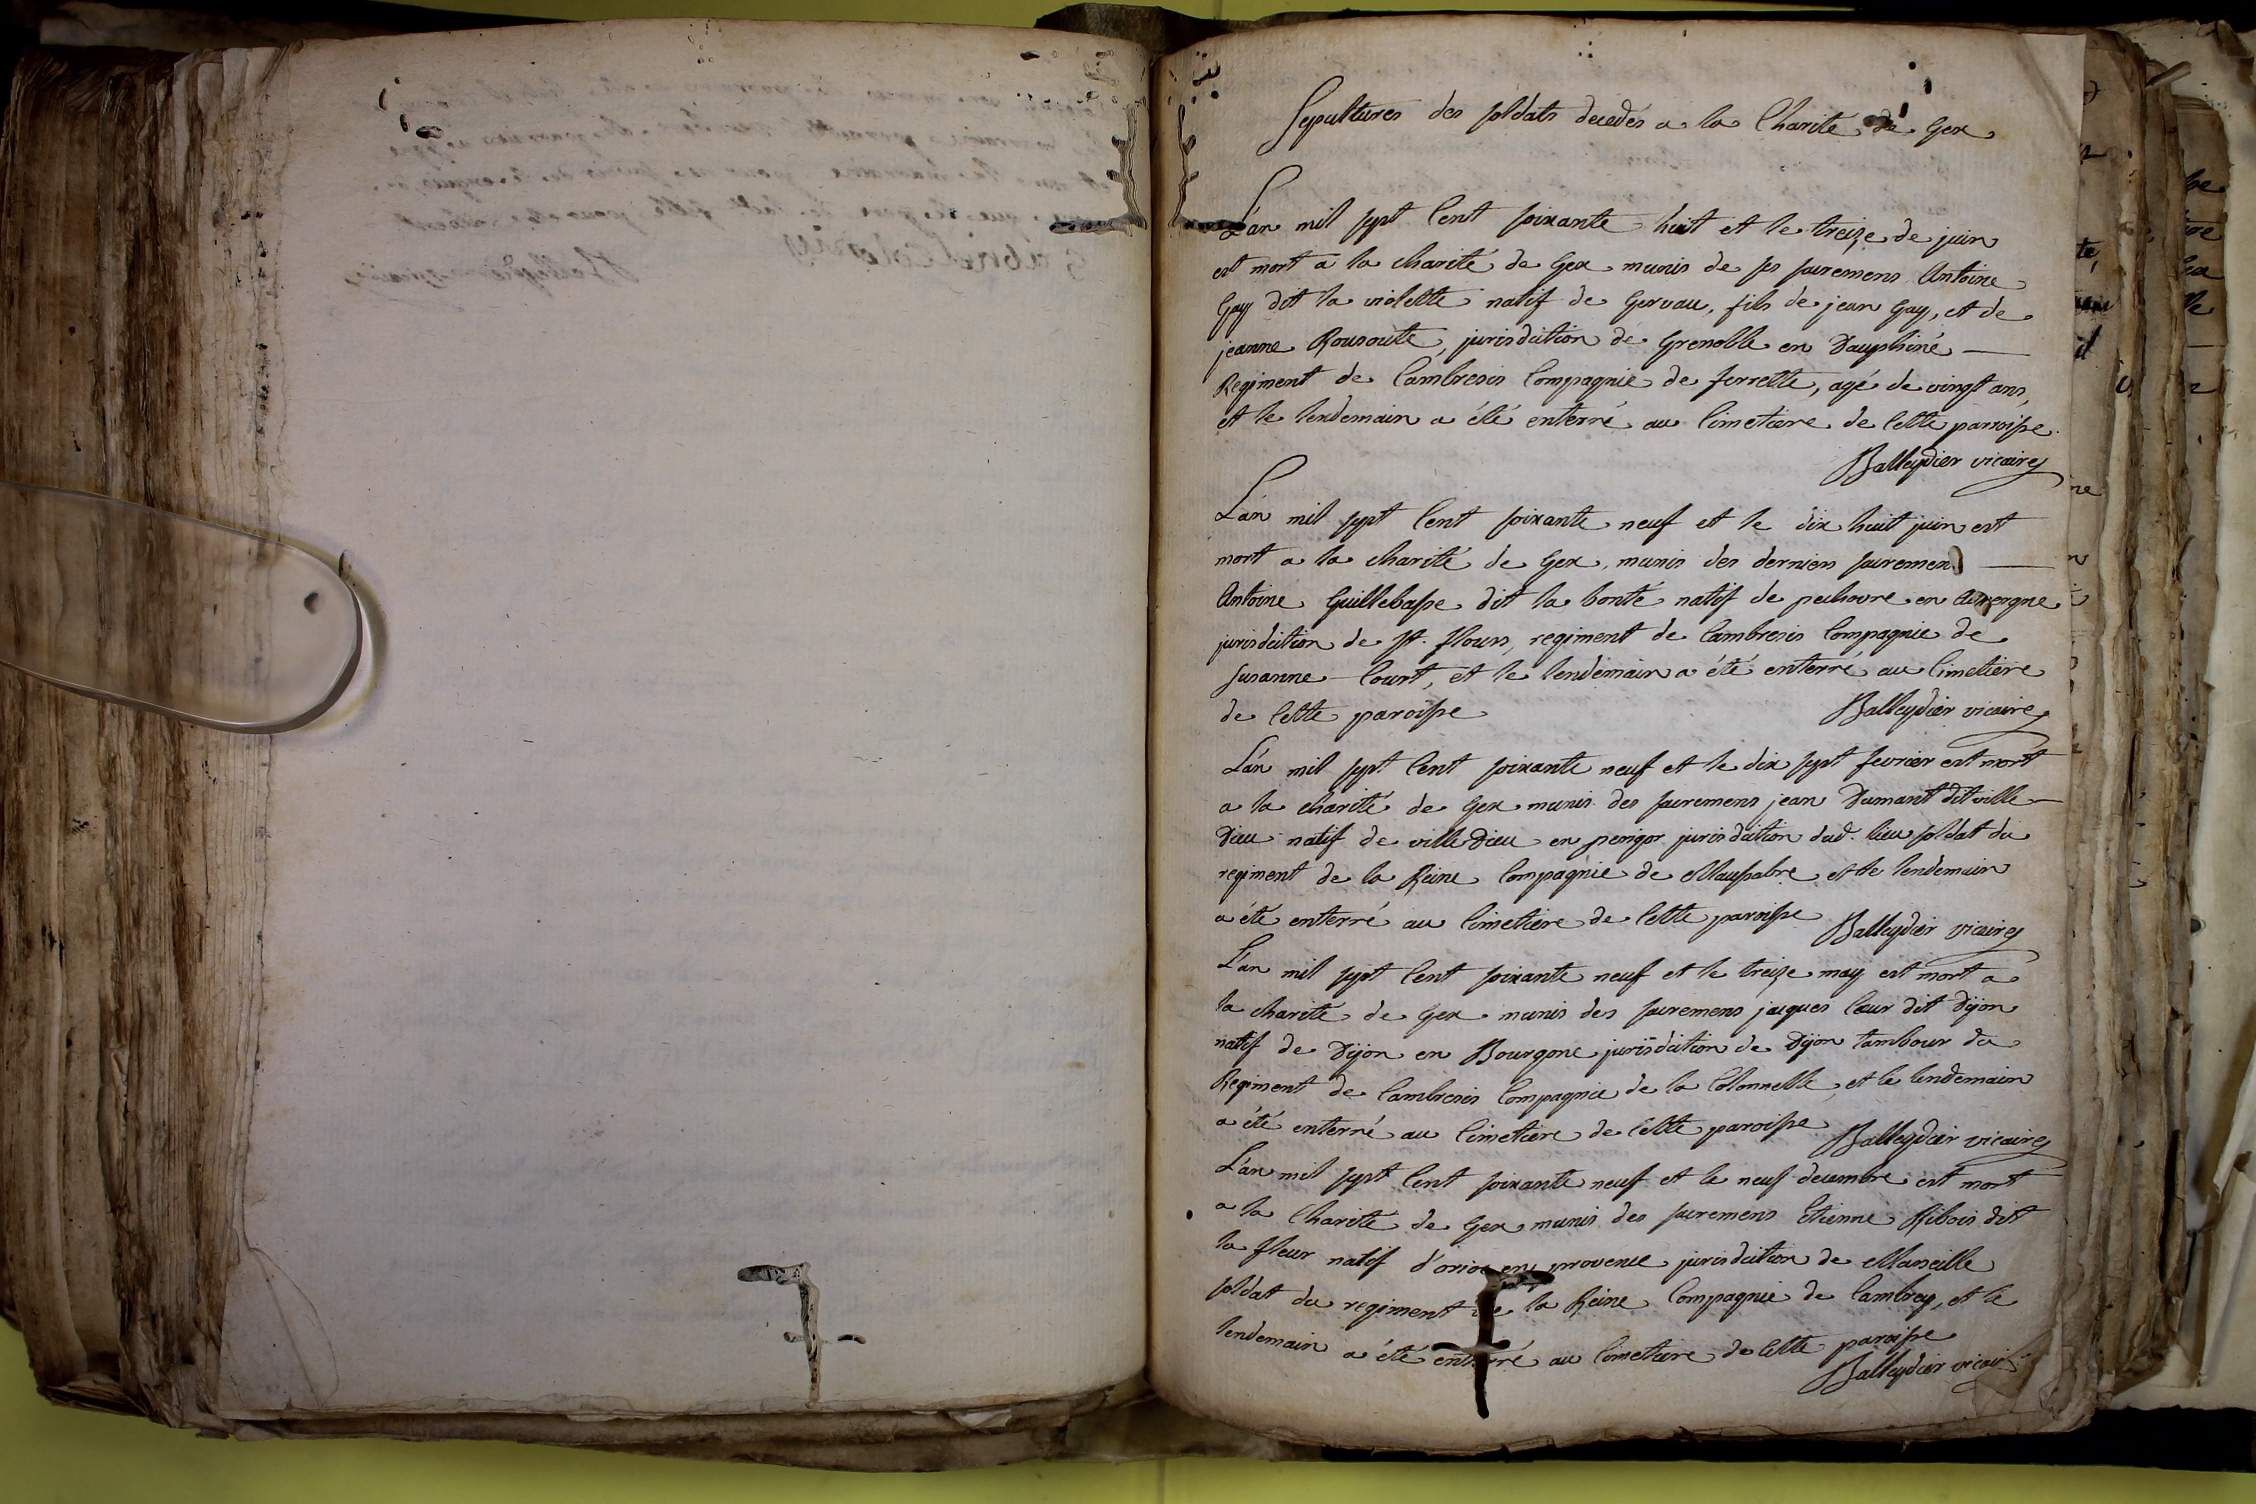 Sepultures des soldats decedés a la Charité de Gex
L'an mil sept Cent soixante huit et le treize de juin
est mort a la charité de Gex munis de ses sacremens Antoine
Gay dit la violette natif de Gervau, fils de jean Gay, et de
jeanne Rousoute, jurisdiction de Grenoble en Dauphiné
Regiment de Cambresis Compagnie de ferrette, agé de vingt ans,
et le lendemain a été enterré au Cimetiere de Cette parroisse.
Balleydier vicaire
L'an mil sept Cent soixante neuf et le dix huit juin est
mort a la charité de Gex, munis des derniers sacremens
Antoine Guillebasse dit la bonté natif de en Auvergne
jurisdiction de st. flours, regiment de Cambresis Compagnie de
susanne Court, et le lendemain a été enterré au Cimetiere
de Cette paroisse
Balleydier vicaire
L'an mil sept Cent soixante neuf et le dix sept fevrier est mort
a la charité de Gex munis des sacremens jean Dumant dit ville
Dieu natif de ville Dieu en perigor jurisdiction dud. lieu soldat du
regiment de la Reine Compagnie de Maussabre et le lendemain
a été enterré au Cimetiere de Cette paroisse
Balleydier vicaire
L'an mil sept Cent soixante neuf et le treize may est mort a
la charité de Gex munis des sacremens jacques Cœur dit Dijon
natif de Dijon en Bourgone jurisdiction de Dijon tambour du
Regiment de Cambresis Compagnie de la Colonnelle, et le lendemain
a été enterré au Cimetiere de Cette paroisse
Balleydier vicaire
L'an mil sept Cent soixante neuf et le neuf decembre est mort
a la Charité de Gex munis des sacremens Etienne Ribois dit
la fleur natif en provence jurisdiction de Marseille
soldat du regiment de la Reine Compagnie de Cambrey, et le
lendemain a été enterré au Cimetiere de Cette paroisse
Balleydier vicaire